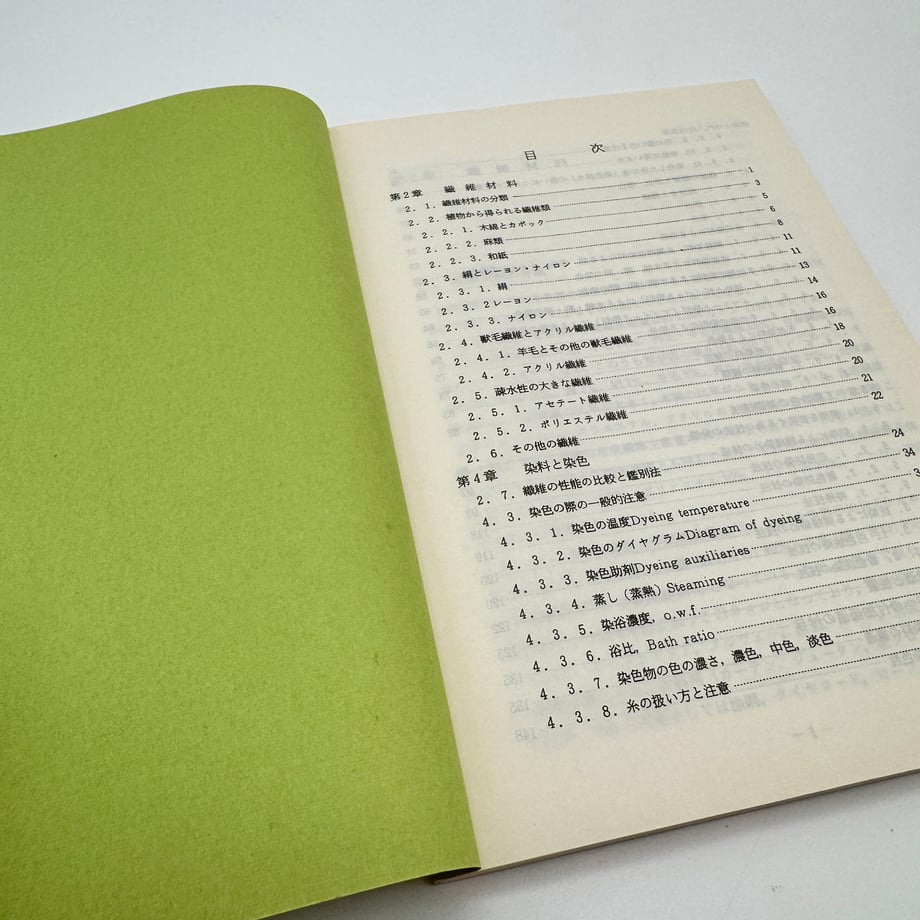 目　次
第2章　繊維材料 1
2．1．繊維材料の分類 3
2．2．植物から得られる繊維類 5
2．2．1．木綿とカポック 6
2．2．2．麻類 8
2．2．3．和紙 11
2．3．絹とレーヨン・ナイロン 11
2．3．1．絹 13
2．3．2レーヨン 14
2．3．3．ナイロン 16
2．4．獣毛繊維とアクリル繊維 16
2．4．1．羊毛とその他の獣毛繊維 18
2．4．2．アクリル繊維 20
2．5．疎水性の大きな繊維 20
2．5．1．アセテート繊維 21
2．5．2．ポリエステル繊維 22
2．6．その他の繊維
第4章　染料と染色 24
2．7．繊維の性能の比較と鑑別法 34
4．3．染色の際の一般的注意
4．3．1．染色の温度Dyeing temperature
4．3．2．染色のダイヤグラムDiagram of dyeing
4．3．3．染色助剤Dyeing auxiliaries
4．3．4．蒸し（蒸熱）Steaming
4．3．5．染浴濃度，o.w.f.
4．3．6．浴比，Bath ratio
4．3．7．染色物の色の濃さ，濃色，中色，淡色
4．3．8．糸の扱い方と注意